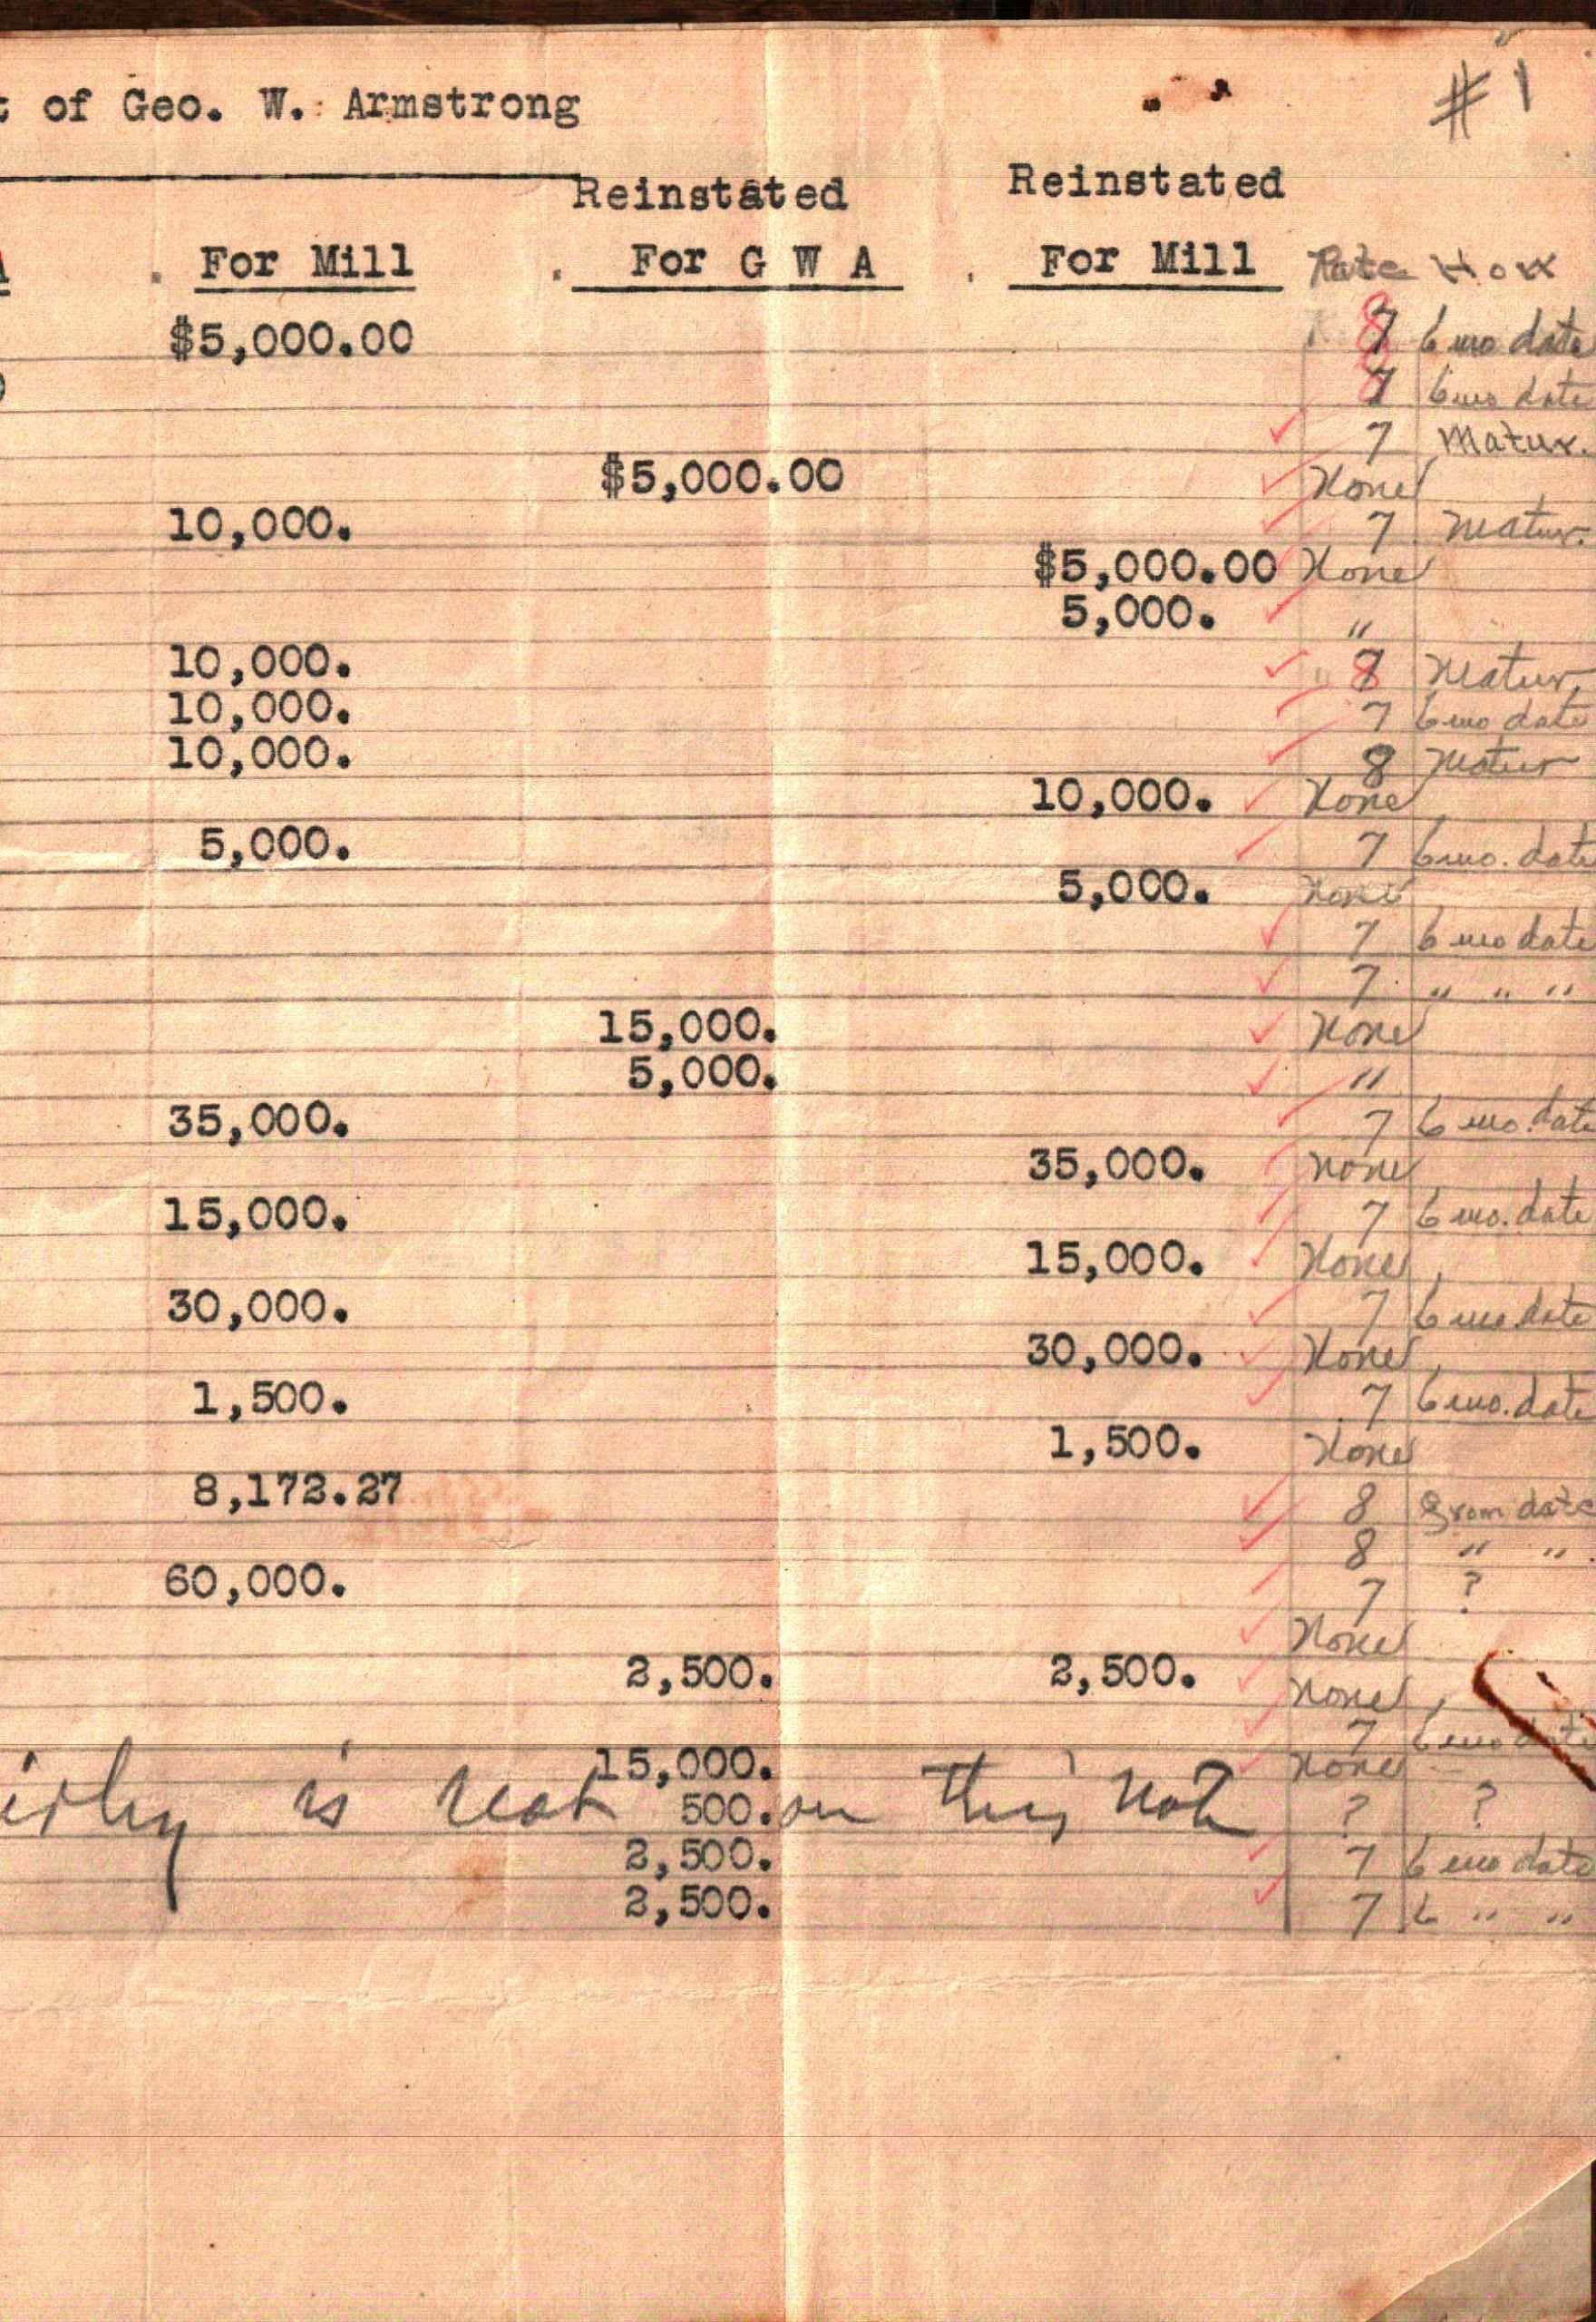 #1
of Geo. W. Armstrong
Reinstated Reinstated
For Mill For G W A For Mill Rate How
$5,000.00 7 6 mo date
7 6 mo date
7 Matur.
$5,000.00 None
10,000. 7 Matur.
$5,000.00 None
5,000. "
10,000. 8 Matur.
10,000. 7 6 mo date
10,000. 8 Matur
10,000. None
5,000. 7 6 mo. date
5,000. None
7 6 mo date
7 " " "
15,000. None
5,000. "
35,000. 7 6 mo. date
35,000. none
15,000. 7 6 mo. date
15,000. None
30,000. 7 6 mo date
30,000. None
1,500. 7 6 mo. date
1,500. None
8,172.27 8 From date
8 " "
60,000. 7 ?
None
2,500. 2,500. None
7 6 mo date
15,000. None
is not on this note
500. ? ?
2,500. 7 6 mo date
2,500. 7 6 " "